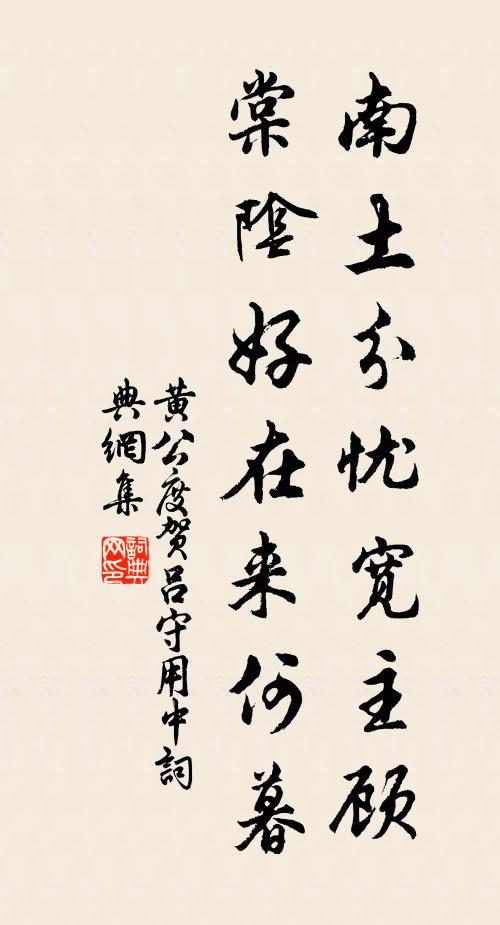 南土分忧宽主顾
棠陰好在来何暮
黄公度贺吕守用中詞
典網集
詞典网印